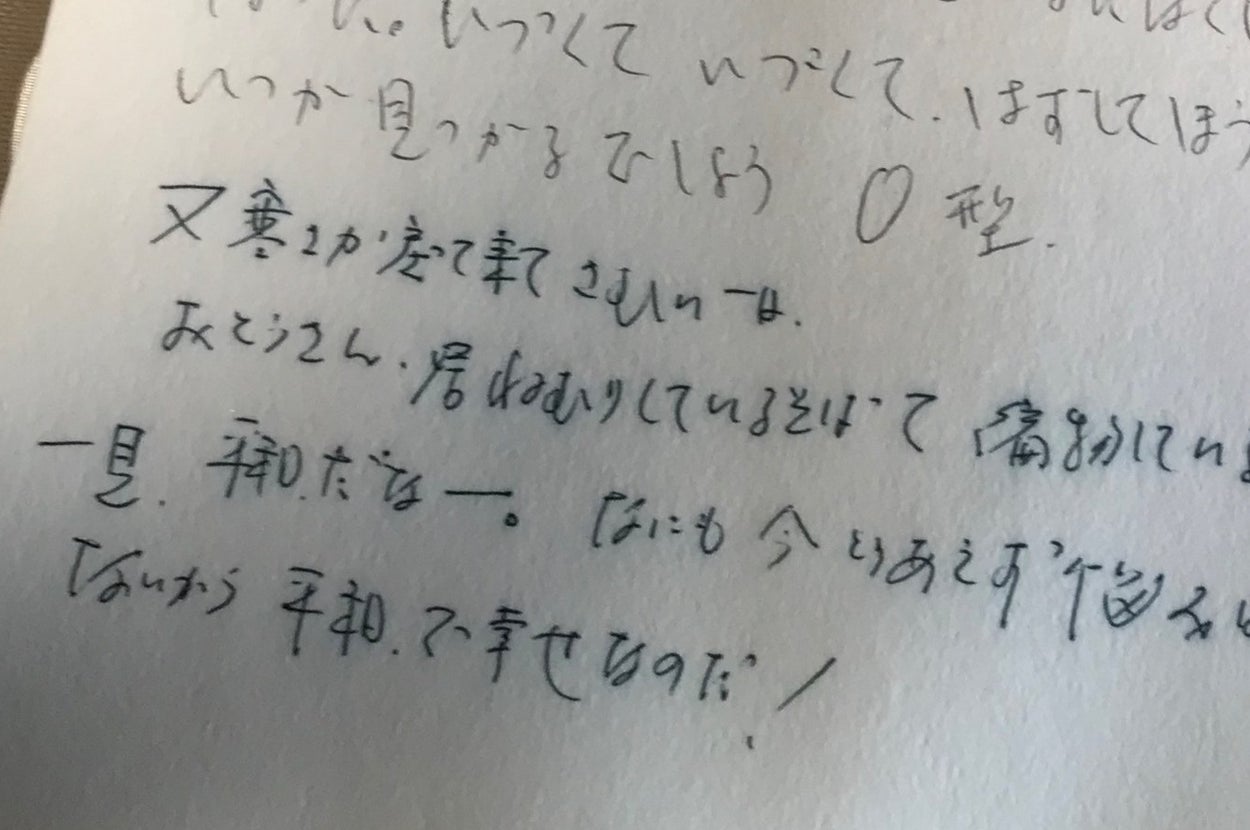 いつくて いづくて.はずしてほう
いつか見つかるでしょう O型.
又寒さが差て来て さむい一日.
おとうさん.居ねむりしているそばで
一見.平和.だなー。なにも 今 とりあえず 悩み
ないから 平和.で幸せなのだ!